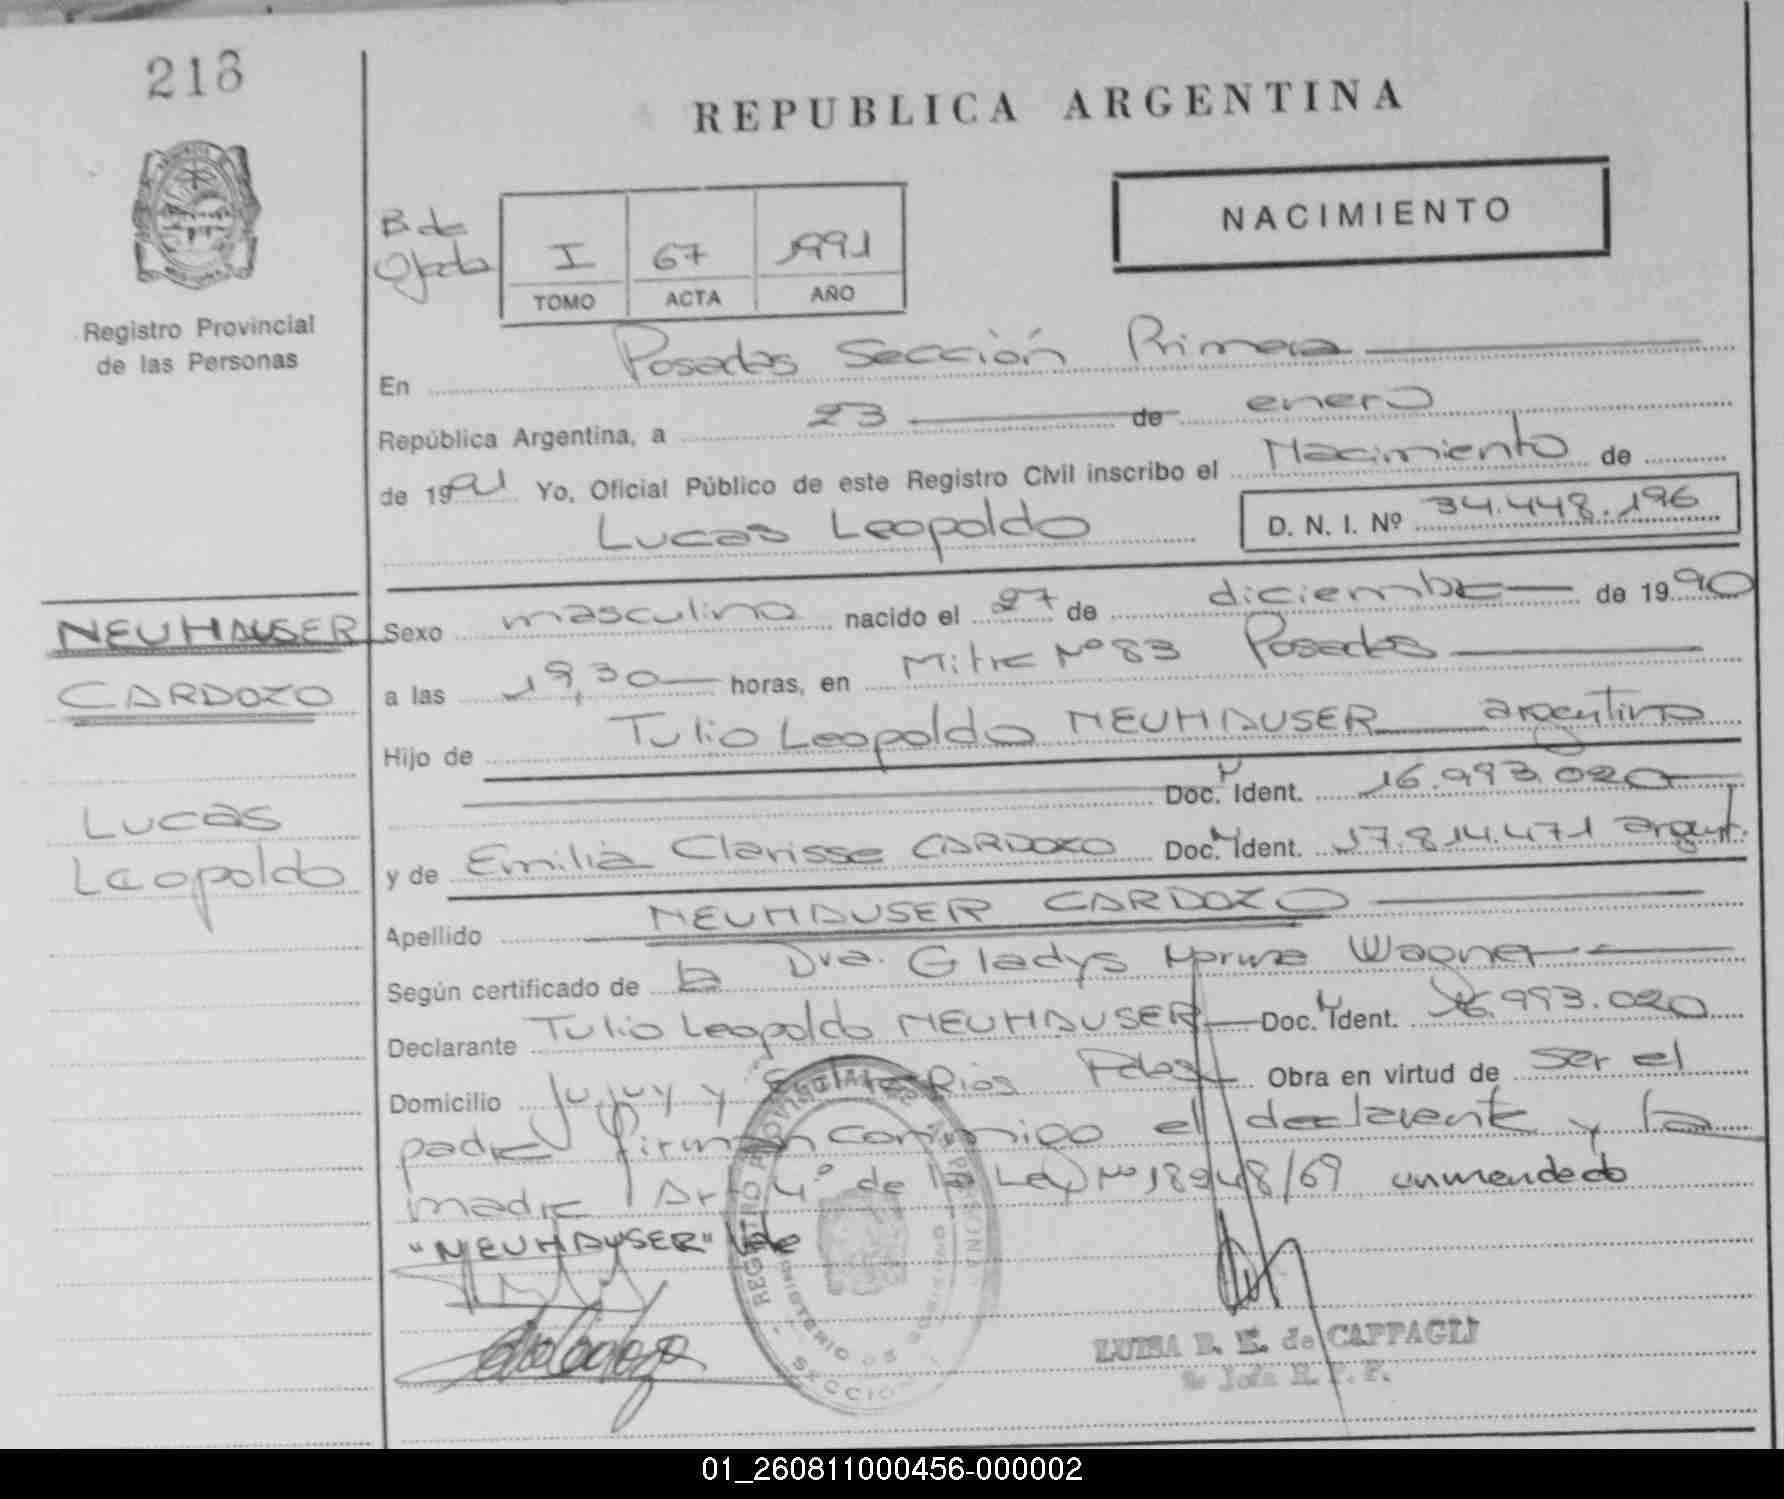 218
REPUBLICA ARGENTINA
NACIMIENTO
B de
I 67 1991
TOMO ACTA AÑO
Registro Provincial
de las Personas
En Posadas Sección Primera
República Argentina, a 23 de enero
de 1991 Yo, Oficial Público de este Registro Civil inscribo el Nacimiento de
Lucas Leopoldo D. N. I. Nº 34.448.196
NEUHAUSER
CARDOZO
Lucas
Leopoldo
Sexo masculino nacido el 27 de diciembre de 1990
a las 19,30 horas, en Mitre Nº 83 Posadas
Hijo de Tulio Leopoldo NEUHAUSER argentino
Doc. Ident. 16.993.020
y de Emilia Clarisse CARDOZO Doc. Ident. 17.814.471 argent.
Apellido NEUHAUSER CARDOZO
Según certificado de la Dra. Gladys Norma Wagner
Declarante Tulio Leopoldo NEUHAUSER Doc. Ident. 16.993.020
Domicilio Jujuy y Entre Rios Pdas Obra en virtud de ser el
padre firman conmigo el declarante y la
madre Art 4º de la Ley Nº 18948/69 enmendado
"NEUHAUSER" Vale
REGISTRO PROVINCIAL DE LAS PERSONAS
MINISTERIO DE GOBIERNO
SECCION
LUISA B. E. de CAPPAGLI
01_260811000456-000002